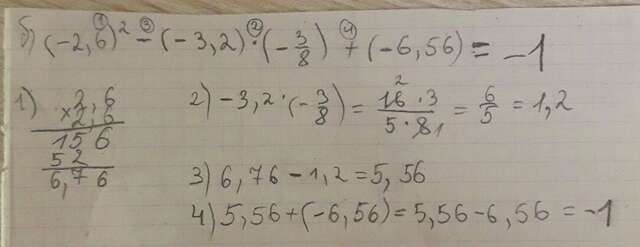 б) (-2,6)² - (-3,2) · (-3/8) + (-6,56) = -1
① ③ ② ④
1) 2,6
× 2,6
156
52
6,76
2) -3,2 · (-3/8) = (16² · 3)/(5 · 8₁) = 6/5 = 1,2
3) 6,76 - 1,2 = 5,56
4) 5,56 + (-6,56) = 5,56 - 6,56 = -1